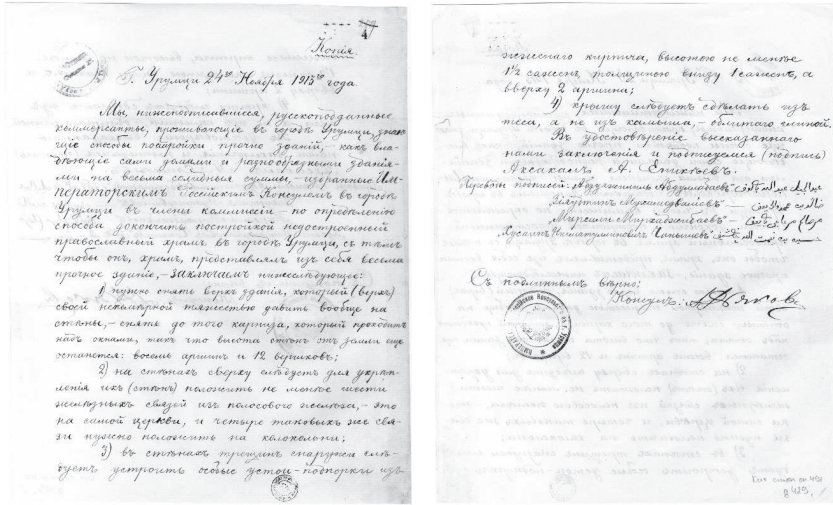 4
Копія
Г. Урумци 24го Ноября 1913го года.
Мы, нижеподписавшіеся, русскоподданные
коммерсанты, проживающіе въ городѣ Урумци, знаю-
щіе способы постройки прочно зданій, какъ вла-
дѣющіе сами домами и разнообразными зданія-
ми на весьма солидныя суммы, избранные Им-
ператорскимъ Россійскимъ Консуломъ въ городѣ
Урумци въ члены коммиссіи – по опредѣленію
способа докончить постройкой недостроенный
православный храмъ въ городѣ Урумци, съ тѣмъ
чтобы онъ, храмъ, представлялъ изъ себя весьма
прочное зданіе, – заключаемъ нижеслѣдующее:
1) нужно снять верхъ зданія, который (верхъ)
своей непомѣрной тяжестью давитъ вообще на
стѣны, – снять до того карниза, который проходитъ
надъ окнами, такъ что высота стѣнъ отъ земли еще
останется: восемь аршинъ и 12 вершковъ;
2) на стѣнахъ сверху слѣдуетъ для укрѣп-
ленія ихъ (стѣнъ) положить не менѣе шести
желѣзныхъ связей изъ полосового желѣза, – это
на самой церкви, и четыре таковыхъ же свя-
зи нужно положить на колокольни;
3) въ стѣнахъ трещинъ снаружи слѣ-
дуетъ устроить особые устои-подпорки изъ
жженаго кирпича, высотою не менѣе
1½ сажень, толщиною внизу 1 сажень, а
вверху 2 аршина;
4) крышу слѣдуетъ сдѣлать изъ
теса, а не изъ камыша, – облитаго глиной.
Въ удостовѣреніе вышесказаннаго
нами заключенія и подписуемся (подпись)
Аксакалъ А. Еникѣевъ.
Переводы подписей:
Съ подлиннымъ вѣрно:
Консулъ: Дьяковъ